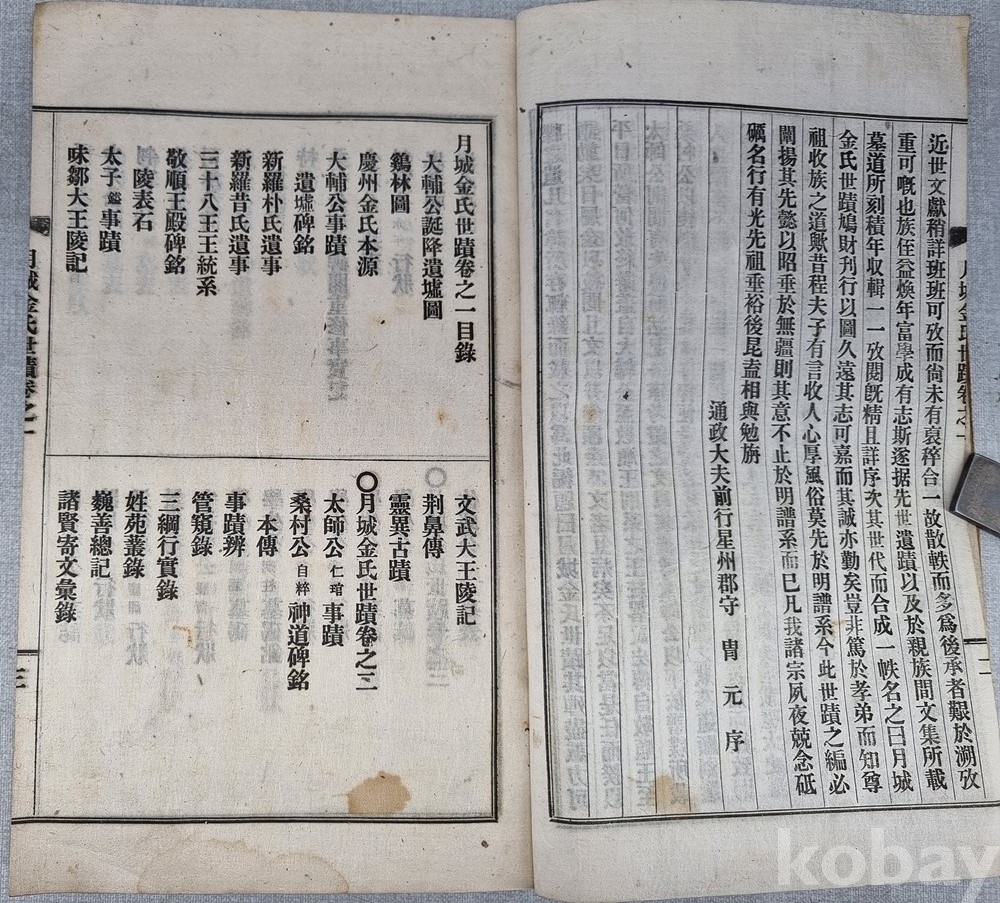 近世文獻稍詳班班可攷而尙未有裒稡合一故散軼而多爲後承者艱於溯攷
重可嘅也族侄益煥年富學成有志斯遂据先世遺蹟以及於親族間文集所載
墓道所刻積年収輯一一攷閱旣精且詳序次其世代而合成一帙名之曰月城
金氏世蹟鳩財刋行以圖久遠其志可嘉而其誠亦勤矣豈非篤於孝弟而知尊
祖收族之道歟昔程夫子有言收人心厚風俗莫先於明譜系今此世蹟之編必
闡揚其先懿以昭垂於無疆則其意不止於明譜系而已凡我諸宗夙夜兢念砥
礪名行有光先祖垂裕後昆盍相與勉旃
通政大夫前行星州郡守 胄 元 序
月城金氏世蹟卷之一
二
月城金氏世蹟卷之一目錄
大輔公誕降遺墟圖
鷄林圖
慶州金氏本源
大輔公事蹟
遺墟碑銘
新羅朴氏遺事
新羅昔氏遺事
三十八王王統系
敬順王殿碑銘
陵表石
太子鎰事蹟
味鄒大王陵記
文武大王陵記
荆鼻傳
靈異古蹟
○月城金氏世蹟卷之二
太師公仁琯事蹟
桑村公自粹神道碑銘
本傳
事蹟辨
管窺錄
三綱行實錄
姓苑叢錄
巍善總記
諸賢寄文彙錄
月城金氏世蹟卷之一
三
kobay